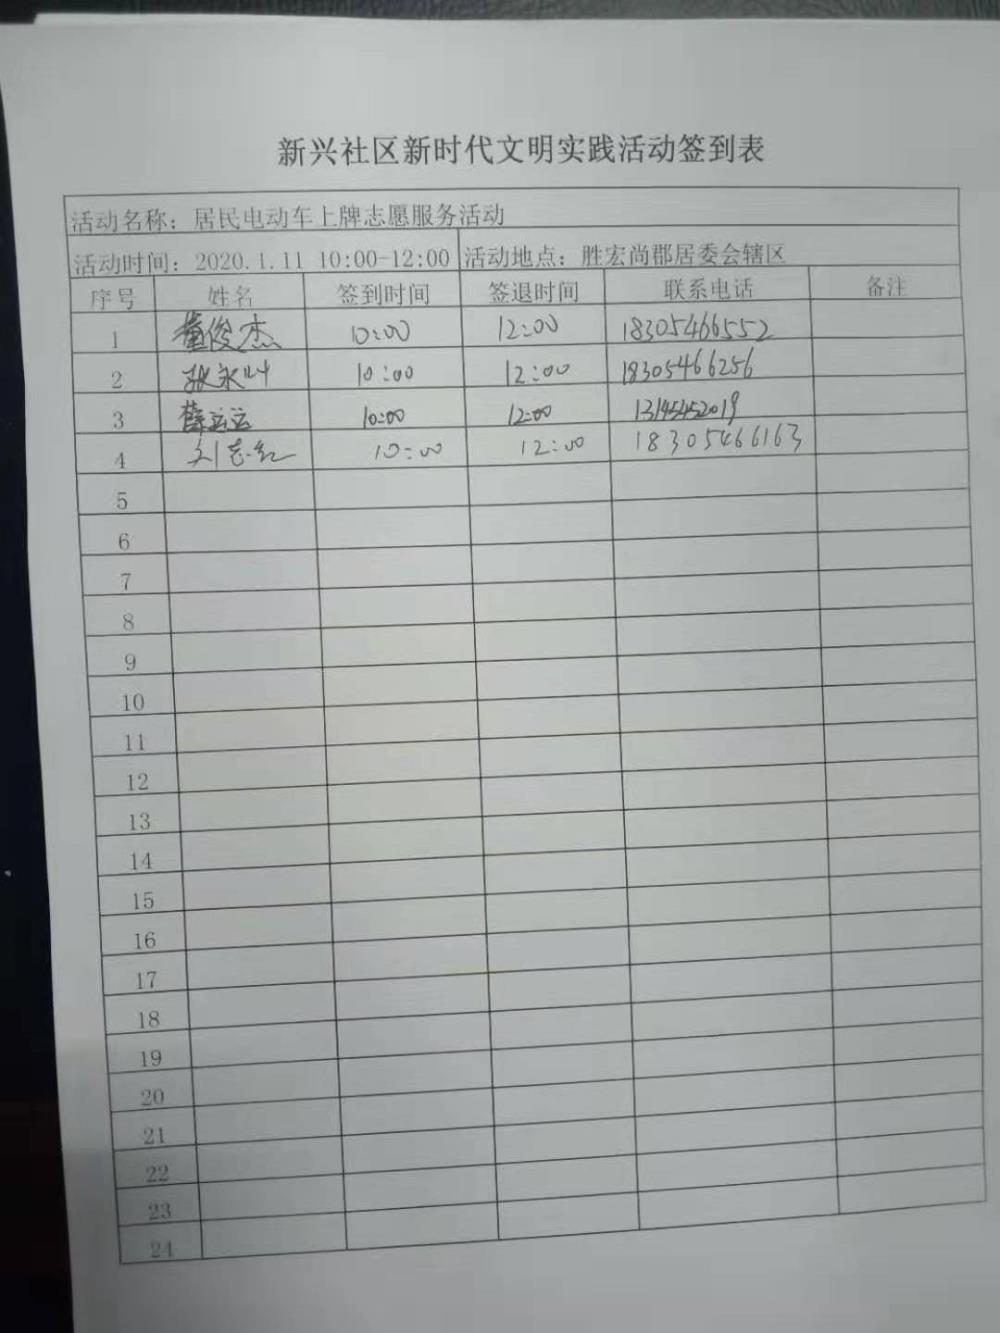 新兴社区新时代文明实践活动签到表
活动名称：居民电动车上牌志愿服务活动
活动时间：2020.1.11 10:00-12:00 活动地点：胜宏尚郡居委会辖区
序号 姓名 签到时间 签退时间 联系电话 备注
1 董俊杰 10:00 12:00 18305466552
2 张永叶 10:00 12:00 18305466256
3 薛运运 10:00 12:00 13145452019
4 刘志红 10:00 12:00 18305466163
5
6
7
8
9
10
11
12
13
14
15
16
17
18
19
20
21
22
23
24